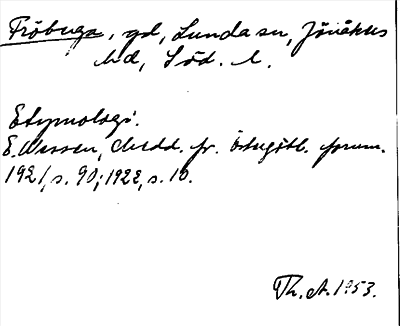 Fröbuga, gd, Lunda sn, Jönåkers
hd, Söd. l.
Etymologi:
E. Wessén, Medd. fr. Östugötl. fornm.
1921, s. 90; 1922, s. 10.
Th. A. 1953.